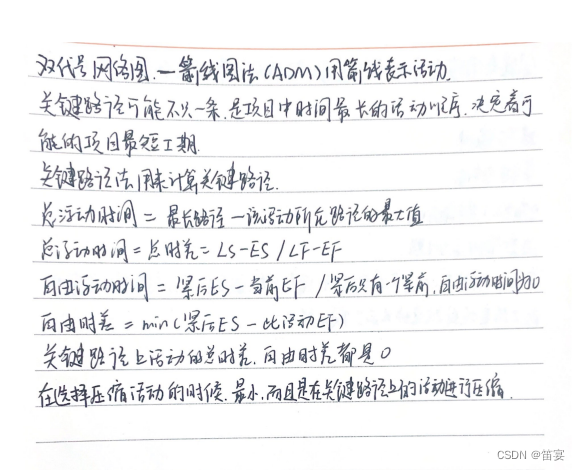 双代号网络图.—箭线图法(ADM)用箭线表示活动.
关键路径可能不止一条.是项目中时间最长的活动顺序.决定着可
能的项目最短工期.
关键路径法用来计算关键路径.
总浮动时间=最长路径-该活动所在路径的最大值
总浮动时间=总时差=LS-ES/LF-EF
自由浮动时间=紧后ES-当前EF/紧后只有一个紧前,自由浮动时间为0
自由时差=min(紧后ES-此活动EF)
关键路径上活动的总时差.自由时差都是0
在选择压缩活动的时候.最小.而且是在关键路径上的活动进行压缩.
CSDN @笛宴